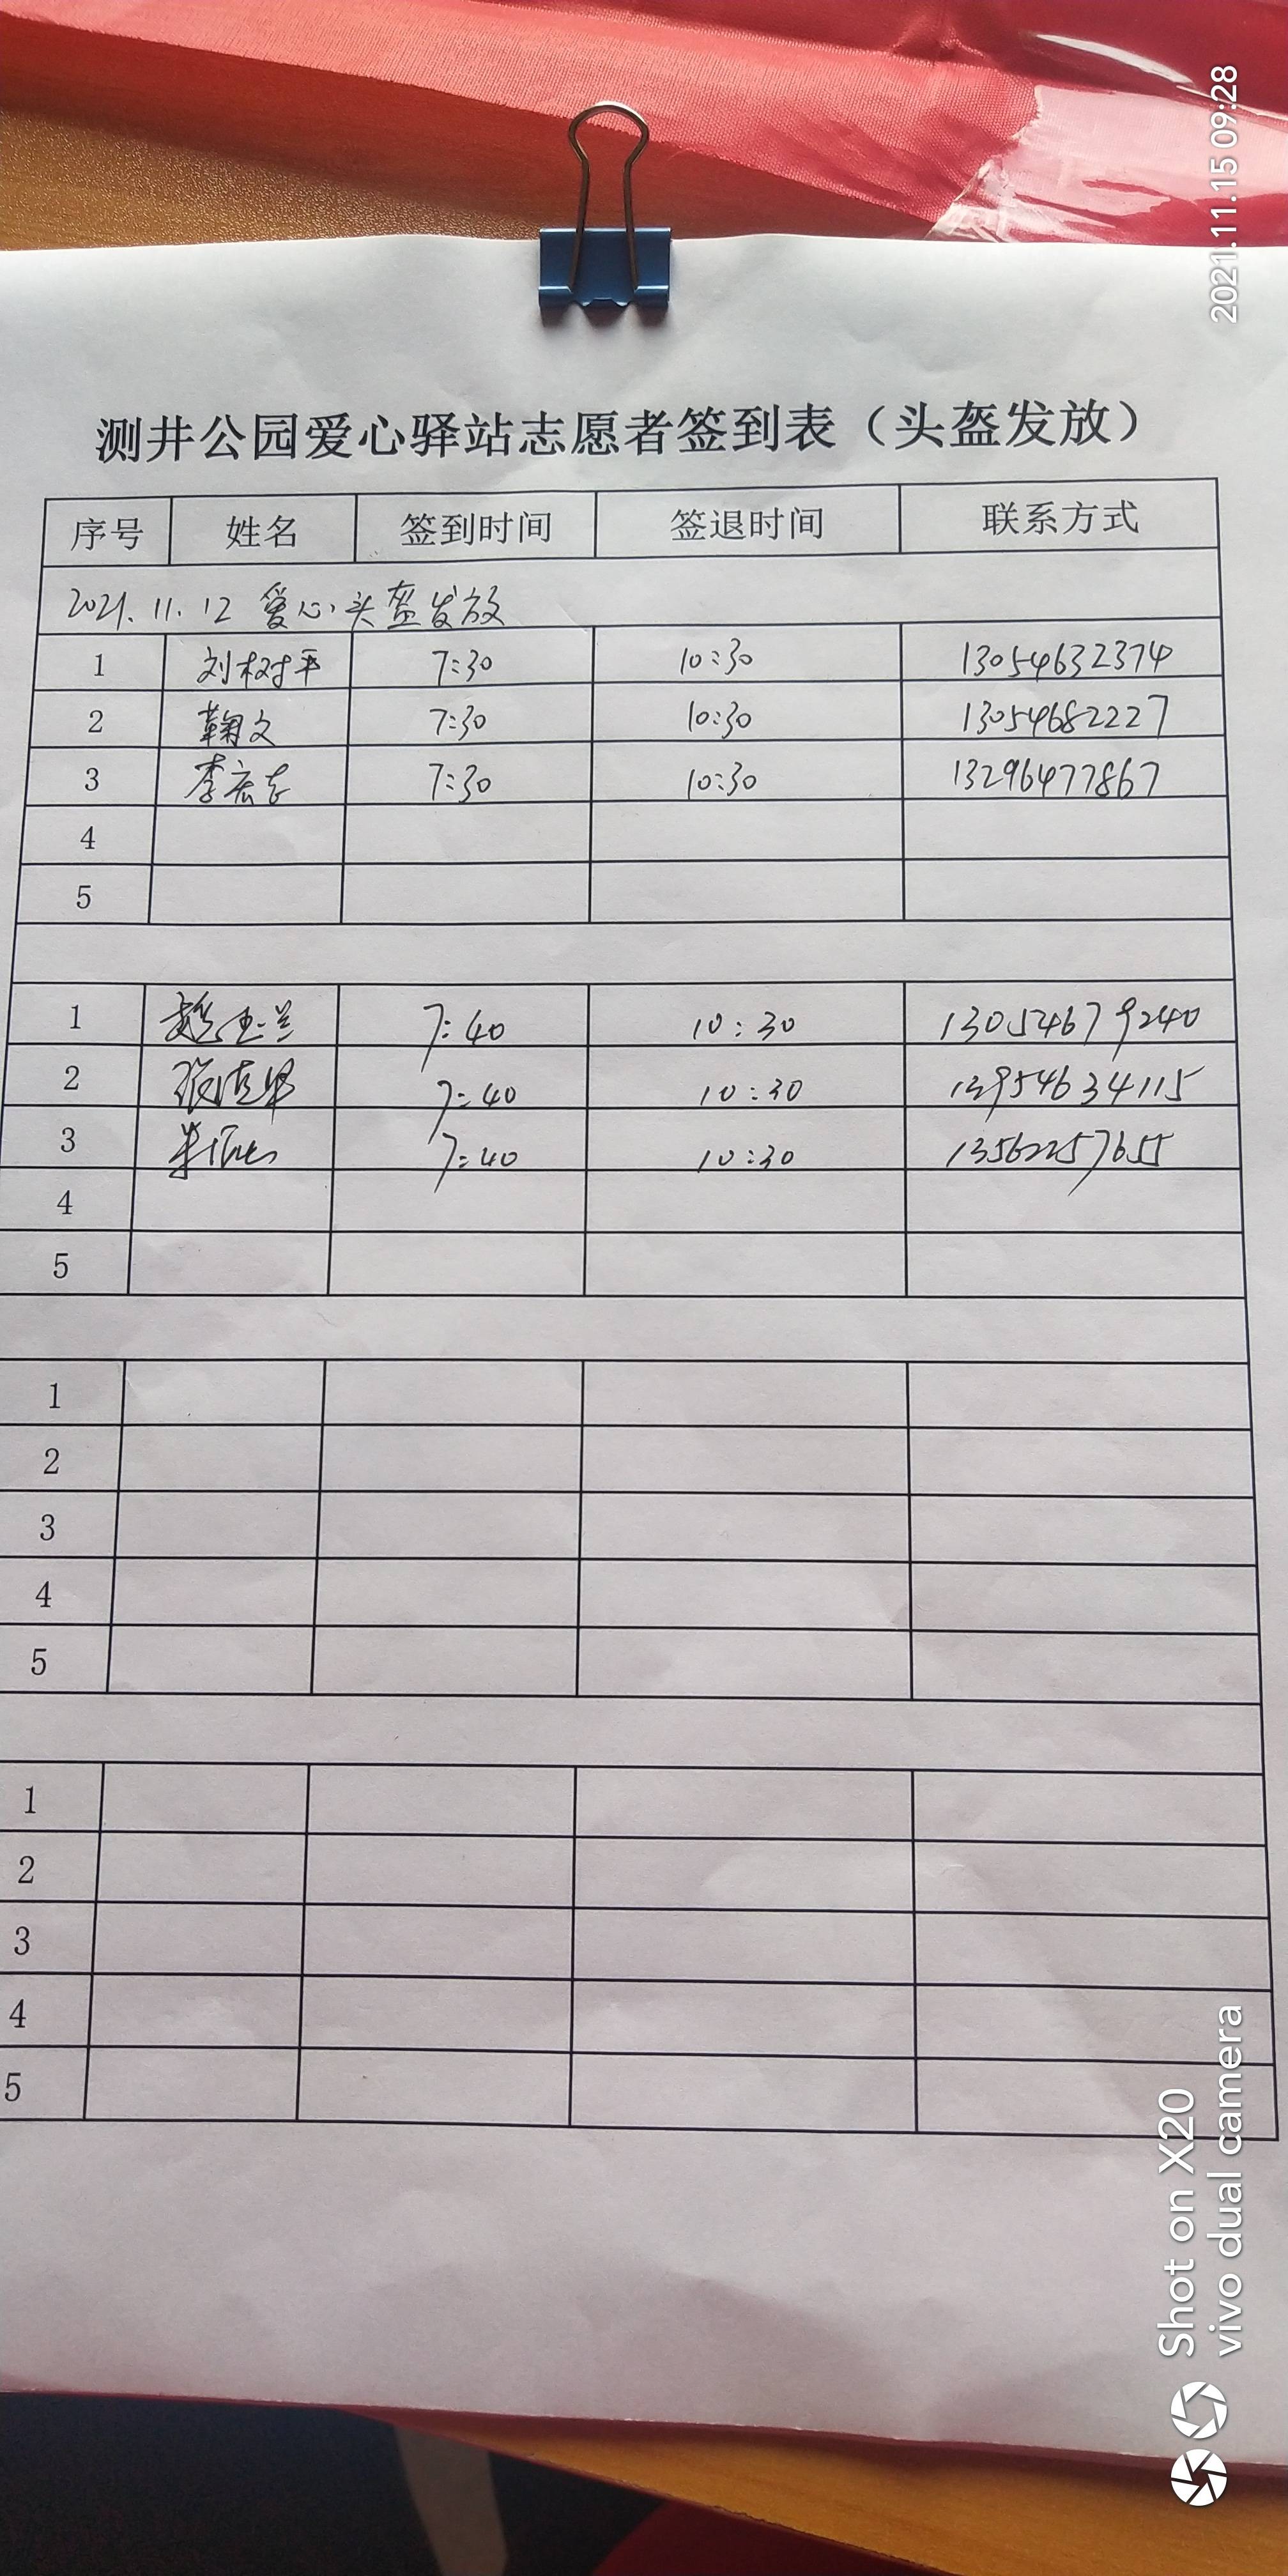 2021.11.15 09:28
测井公园爱心驿站志愿者签到表（头盔发放）
序号 姓名 签到时间 签退时间 联系方式
2021.11.12 爱心头盔发放
1 刘树平 7:30 10:30 13054632374
2 鞠文 7:30 10:30 13054682227
3 李宏志 7:30 10:30 13296477867
4
5
1 赵玉兰 7:40 10:30 13054679240
2 7:40 10:30 13954634115
3 7:40 10:30 13562257655
4
5
1
2
3
4
5
1
2
3
4
5
Shot on X20
vivo dual camera